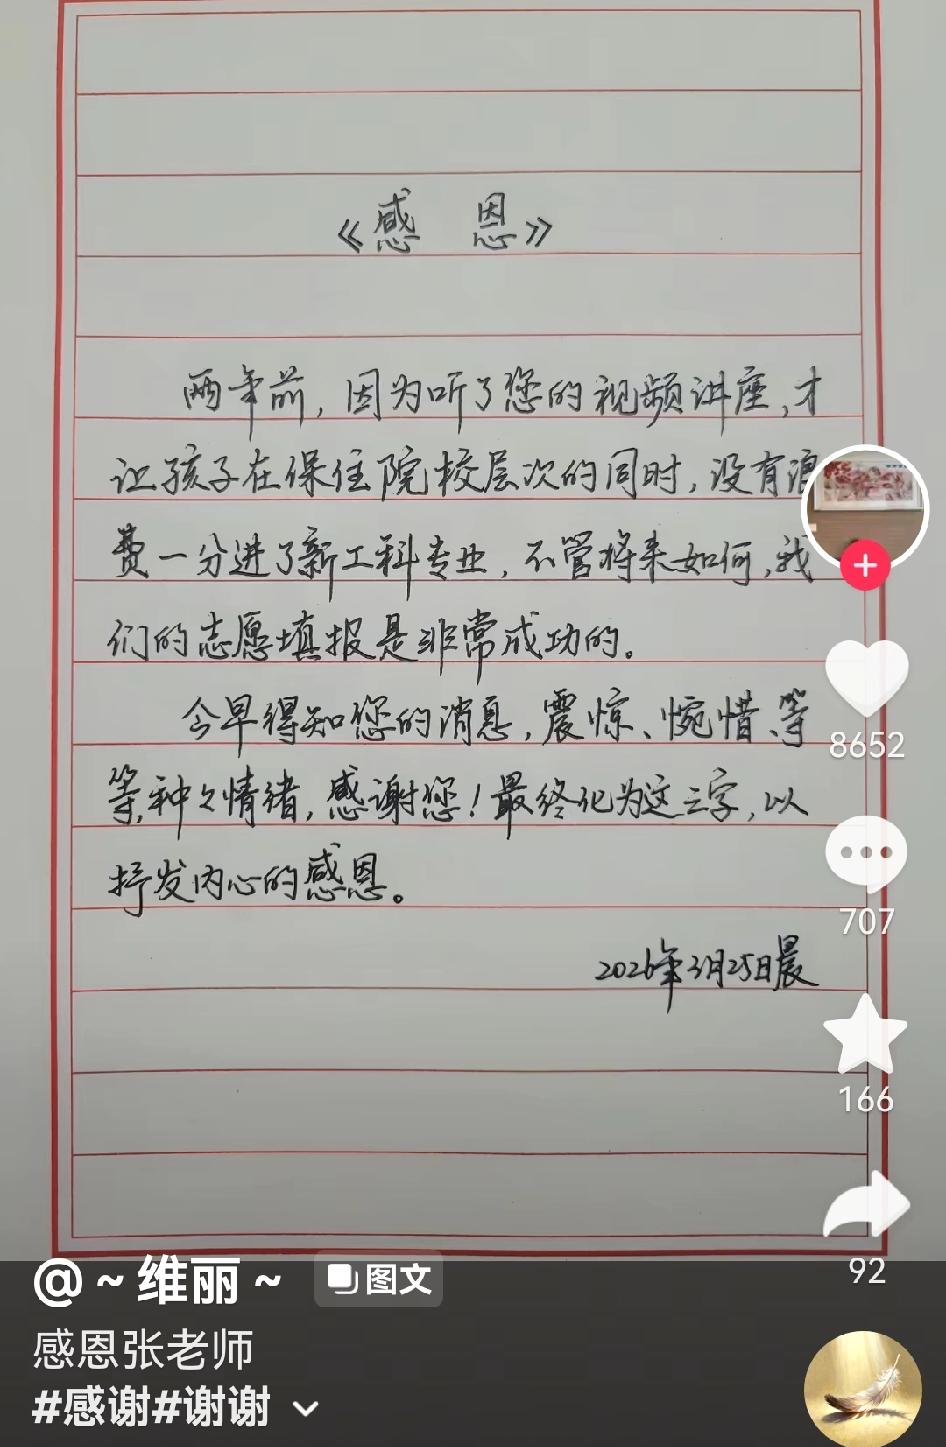 《感 恩》
两年前，因为听了您的视频讲座，才
让孩子在保住院校层次的同时，没有浪
费一分进了新工科专业，不管将来如何，我
们的志愿填报是非常成功的。
今早得知您的消息，震惊、惋惜、等
等，种々情绪，感谢您！最终化为这三字，以
抒发内心的感恩。
2026年3月25日晨
8652
707
166
92
@~维丽~ 图文
感恩张老师
#感谢#谢谢